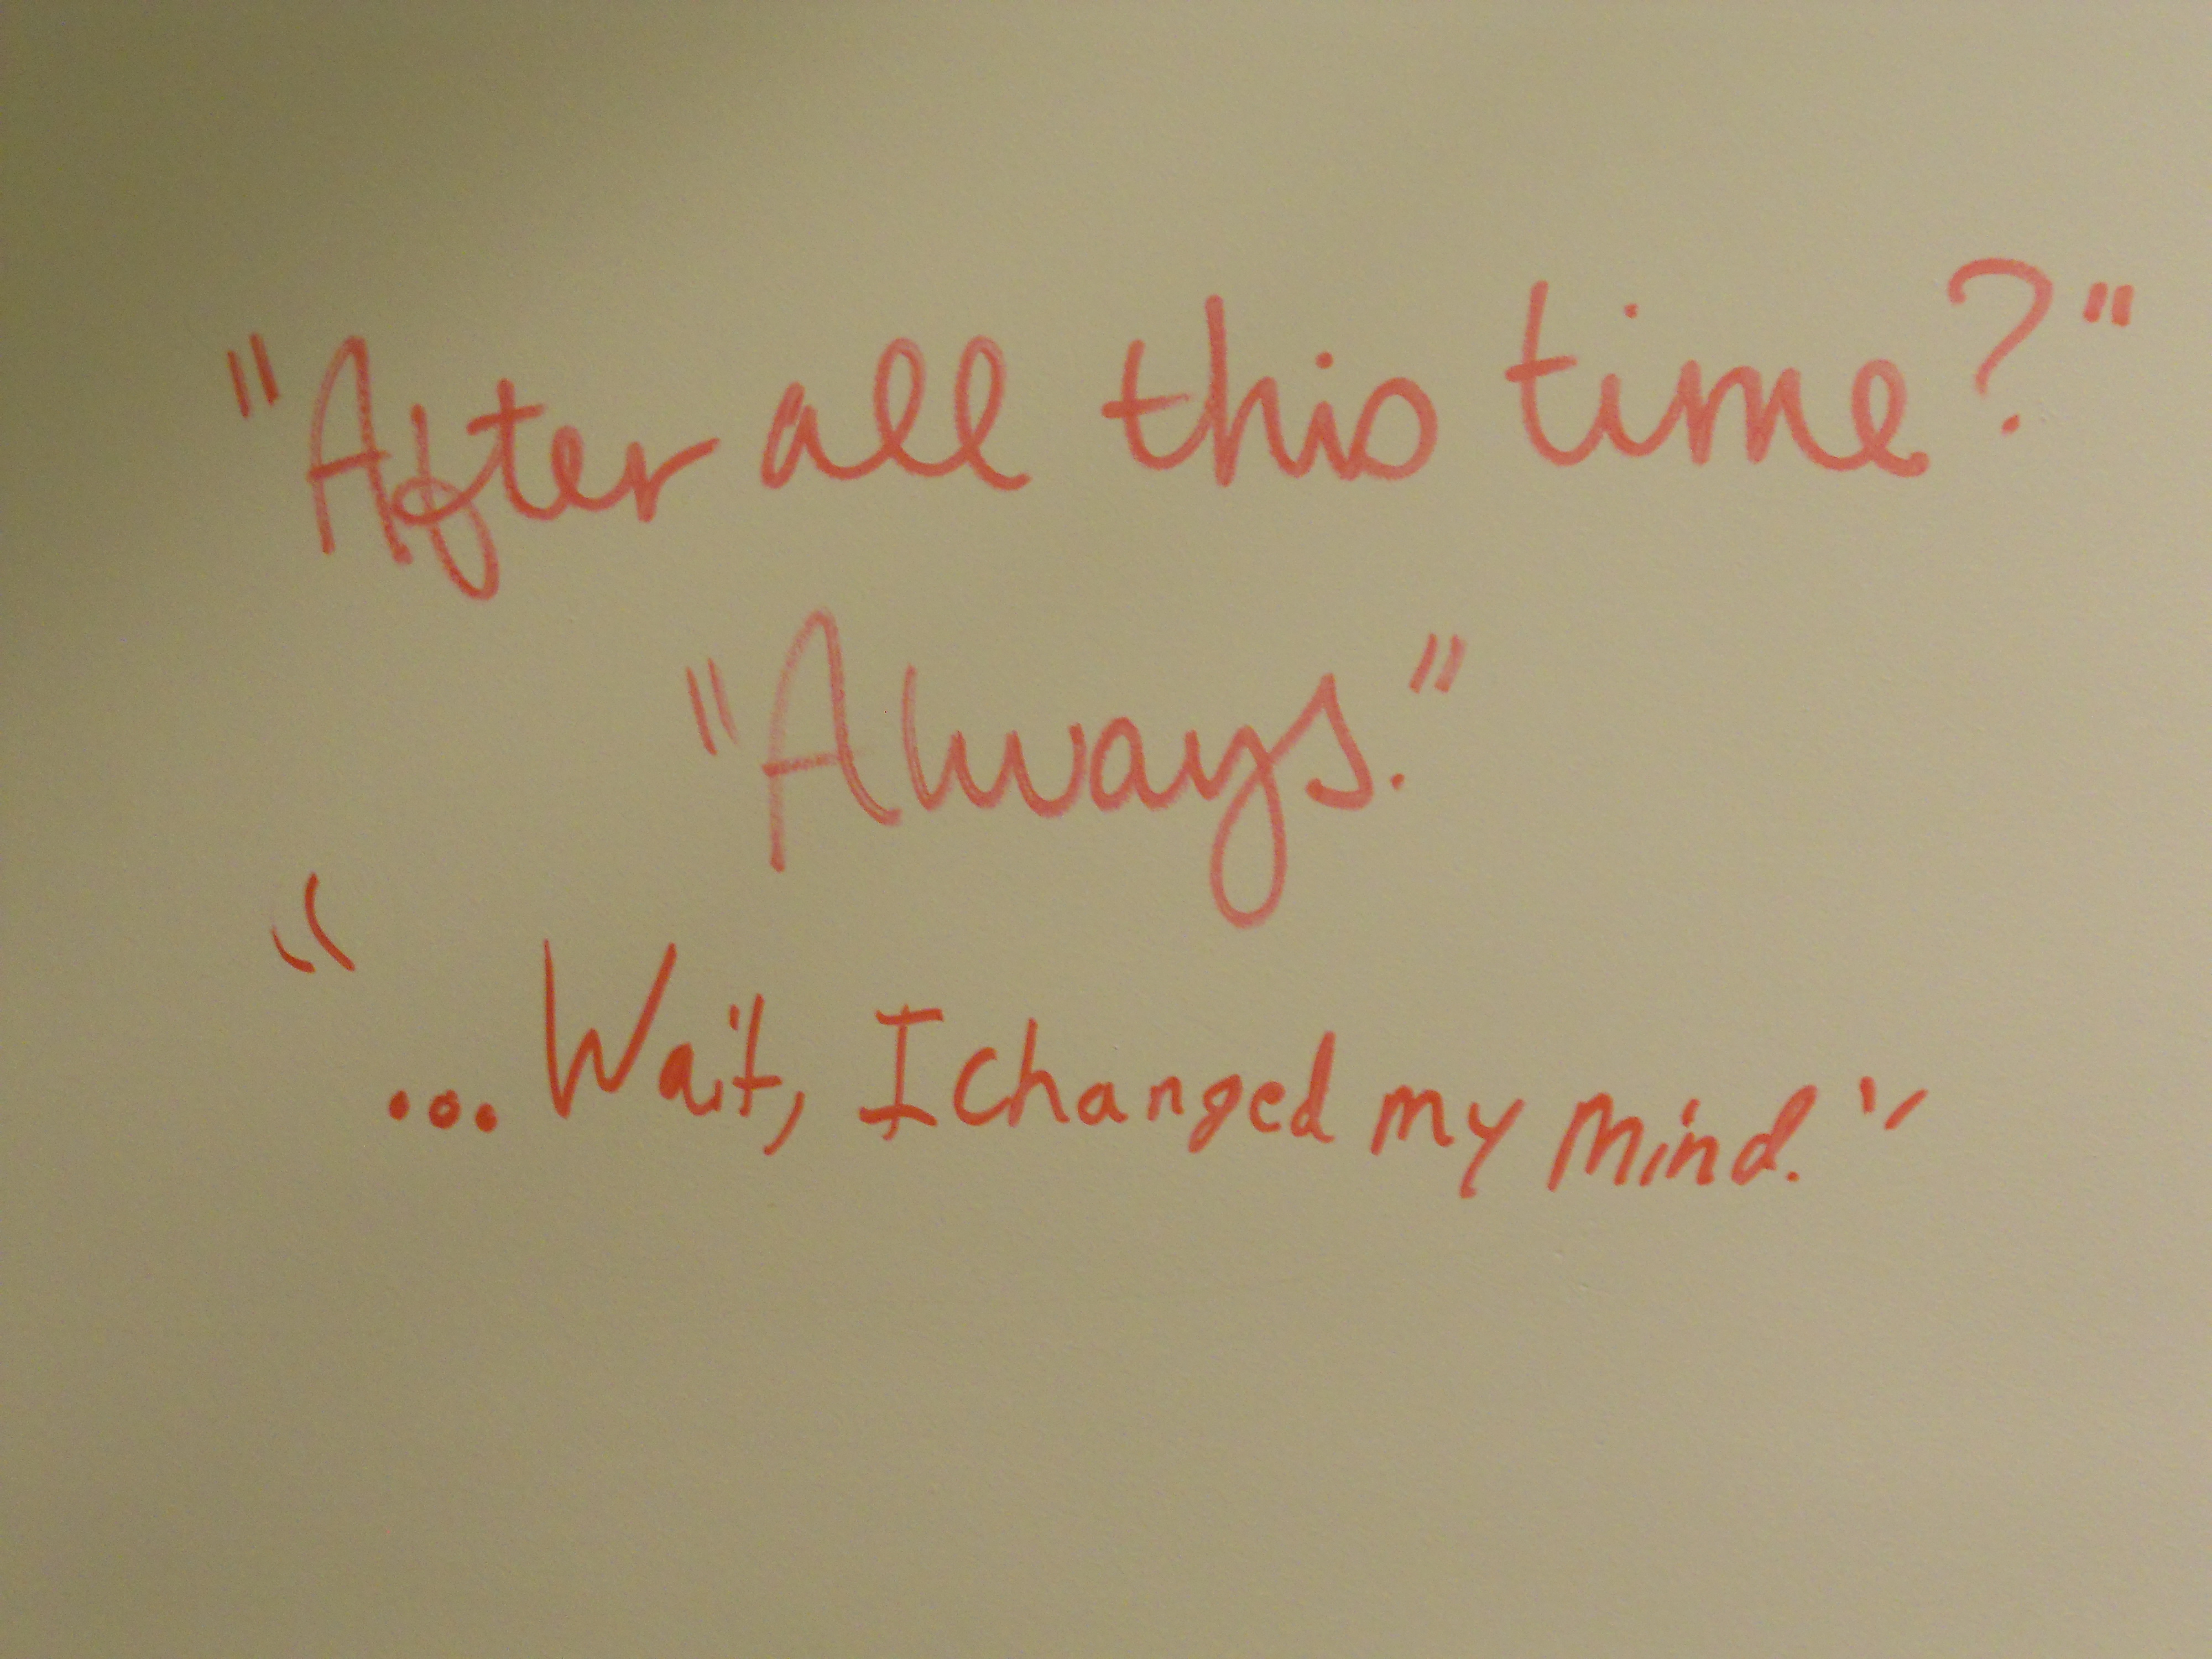 "After all this time?"
"Always."
"... Wait, I changed my mind."